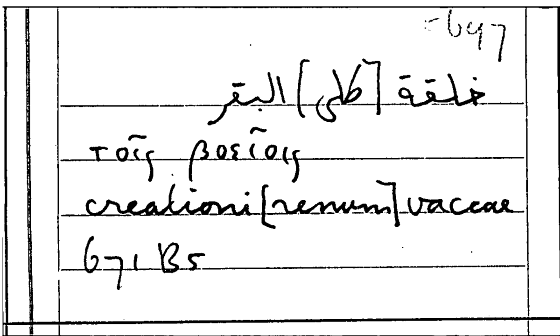 5697
خلقة [كلى] البقر
τοῖς βοείοις
creationi [renum] vaccae
671 B5